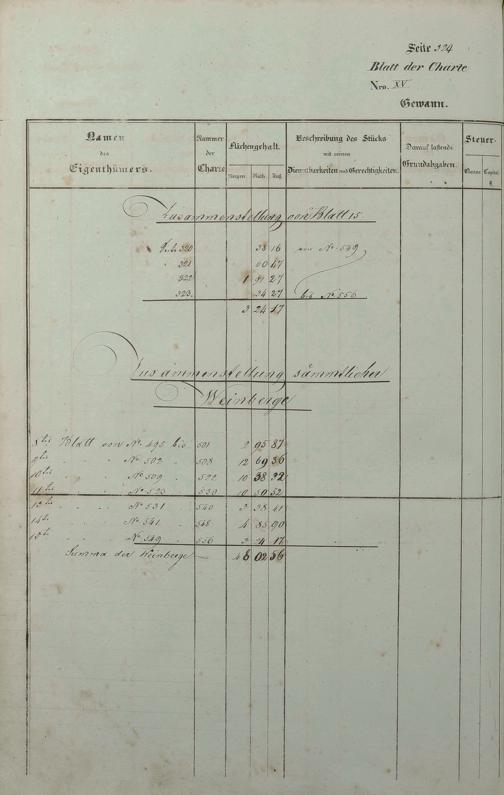 Seite 324
Blatt der Charte
Nro. XV
Gewann.
Namen des Eigenthümers.
Nummer der Charte
Flächengehalt.
Morgen. Ruth. Fuß.
Beschreibung des Stücks mit seinen Dienstbarkeiten und Gerechtigkeiten.
Darauf haftende Grundabgaben.
Steuer-
Capital
Zusammenstellung von Blatt 15
320 38 16 von No 549
321 60 47
322 1 91 27
323. 34 27 bis No 556
3 24 17
Zusammenstellung sämmtlicher
Weinberge
8tes Blatt von No 495 bis 501 2 95 87
9tes No 502 508 12 69 36
10tes No 509 522 10 38 32
No 523 530 10 50 52
No 531 540 2 38 41
14tes No 541 548 4 85 90
15tes No 549 556 3 24 17
Summa der Weinberge 46 02 56